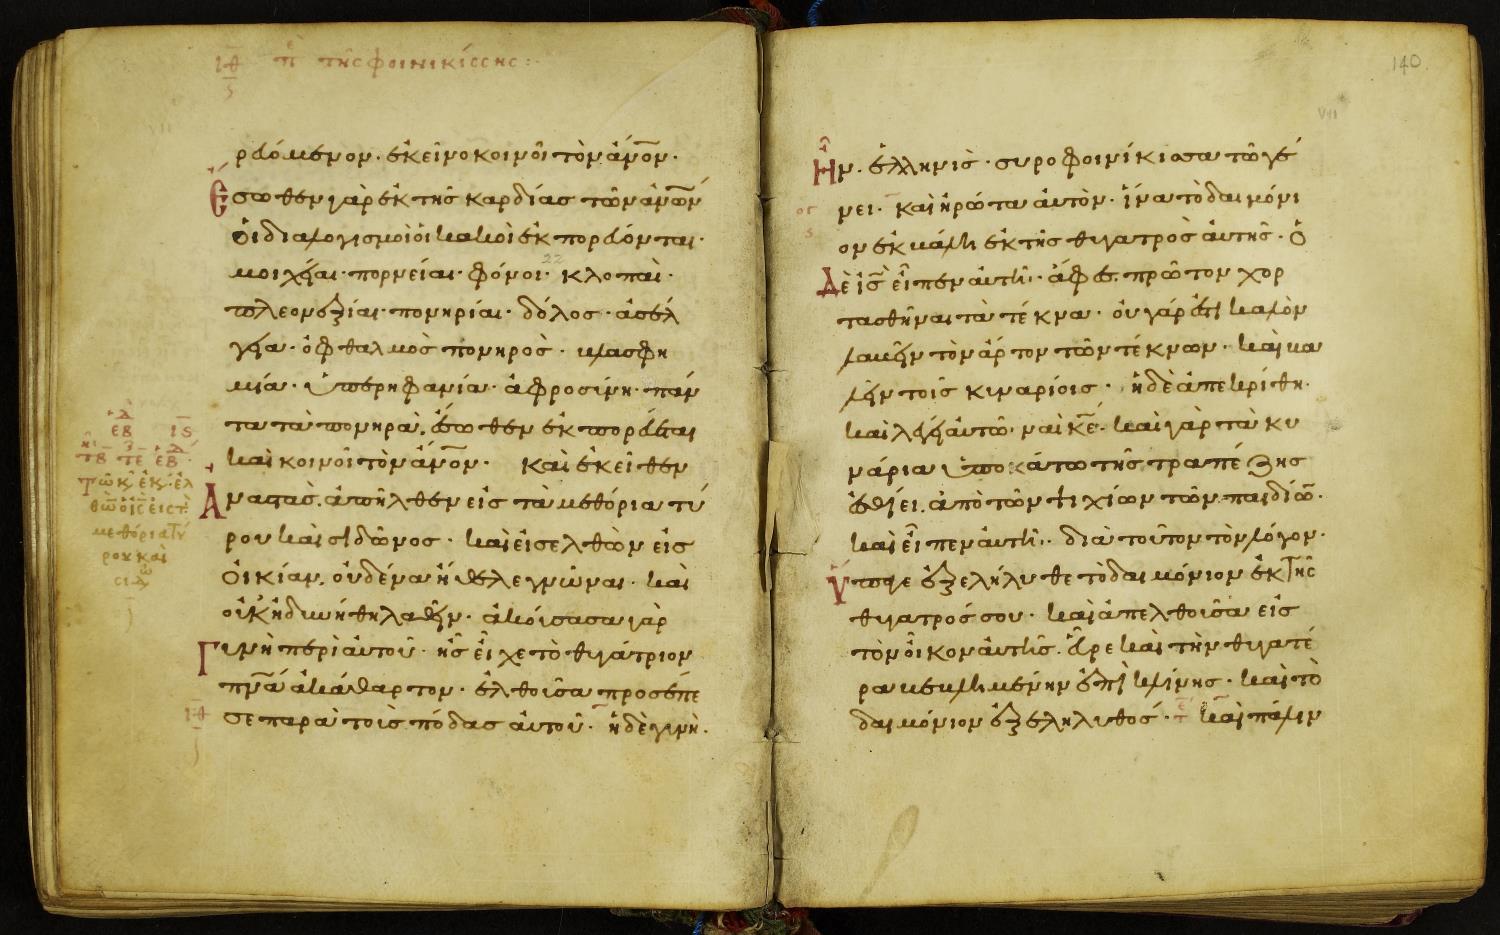 ιθ πε της φοινικίσσης:
ρευόμενον· ἐκεῖνο κοινοῖ τὸν ἄνον·
Ἔσωθεν γὰρ ἐκ τῆς καρδίας τῶν ἀνων
ὁι διαλογισμοὶ ὁι κακοὶ ἐκπορεύονται·
μοιχεῖαι· πορνείαι· φόνοι· κλοπαὶ·
πλεονεξίαι· πονηρίαι· δόλος· ἀσέλ
γεια· ὀφθαλμὸς πονηρὸς· βλασφη
μία· ὑπερηφανία· ἀφροσύνη· πάν
τα τὰ πονηρὰ, ἔσωθεν ἐκπορεύεται
καὶ κοινοῖ τὸν ἄνον· καὶ ἐκεῖθεν
Ἀναστὰς· ἀπῆλθεν εἰς τὰ μεθόρια τύ
ρου καὶ σιδῶνος· καὶ εἰσελθὼν εἰς
ὀικίαν, οὐδένα ἤθελε γνῶναι· καὶ
οὐκ ἠδυνήθη λαθεῖν· ἀκούσασα γὰρ
Γυνὴ περὶ ἀυτοῦ· ἧς εἶχε τὸ θυγάτριον
πνα ἀκάθαρτον· ἐλθοῦσα προσέπε
σε παρὰ τοὺς πόδας ἀυτοῦ· ἡ δὲ γυνὴ·
ιθ
τω κ ἐκ ἐλ
θὼν ὁ ις εἰς τ
μεθόρια τύ
ρου καὶ
σιδω
140
VII
Ἦν· ἑλληνὶς· συροφοινίκισσα τῶ γέ
νει· καὶ ἠρώτα ἀυτὸν· ἵνα τὸ δαιμόνι
ον ἐκβάλη ἐκ τῆς θυγατρὸς ἀυτῆς· ὁ
Δὲ ις εἶπεν ἀυτῆ· ἄφες πρῶτον χορ
τασθῆναι τὰ τέκνα· ὀυ γάρ ἐστι καλὸν
λαβεῖν τὸν ἄρτον τῶν τέκνων· καὶ βα
λεῖν τοῖς κυναρίοις· ἡ δὲ ἀπεκρίθη·
καὶ λέγει ἀυτῶ· ναὶ κε· καὶ γὰρ τὰ κυ
νάρια ὑποκάτω τῆς τραπέζης
ἐσθίει· ἀπὸ τῶν ψιχίων τῶν παιδίω·
καὶ εἶπεν ἀυτῆ· διὰ τοῦτον τὸν λόγον·
Ὕπαγε ἐξελήλυθε τὸ δαιμόνιον ἐκ τῆς
θυγατρός σου· καὶ ἀπελθοῦσα εἰς
τὸν οἶκον ἀυτῆς· εὗρε καὶ τὴν θυγατέ
ρα βεβλημένην ἐπὶ κλίνης· καὶ τὸ
δαιμόνιον ἐξεληλυθός· τε καὶ πάλιν